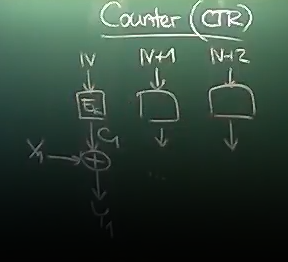 Counter (CTR)
IV IV+1 IV+2
Ek
C1
X1 +
Y1